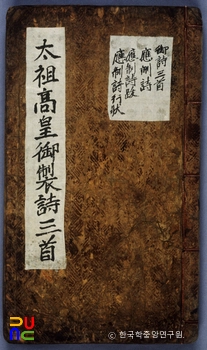 太祖高皇御製詩三首
御詩三首
應制詩
應制詩跋
應制詩行狀
PUAC
© 한국학중앙연구원.